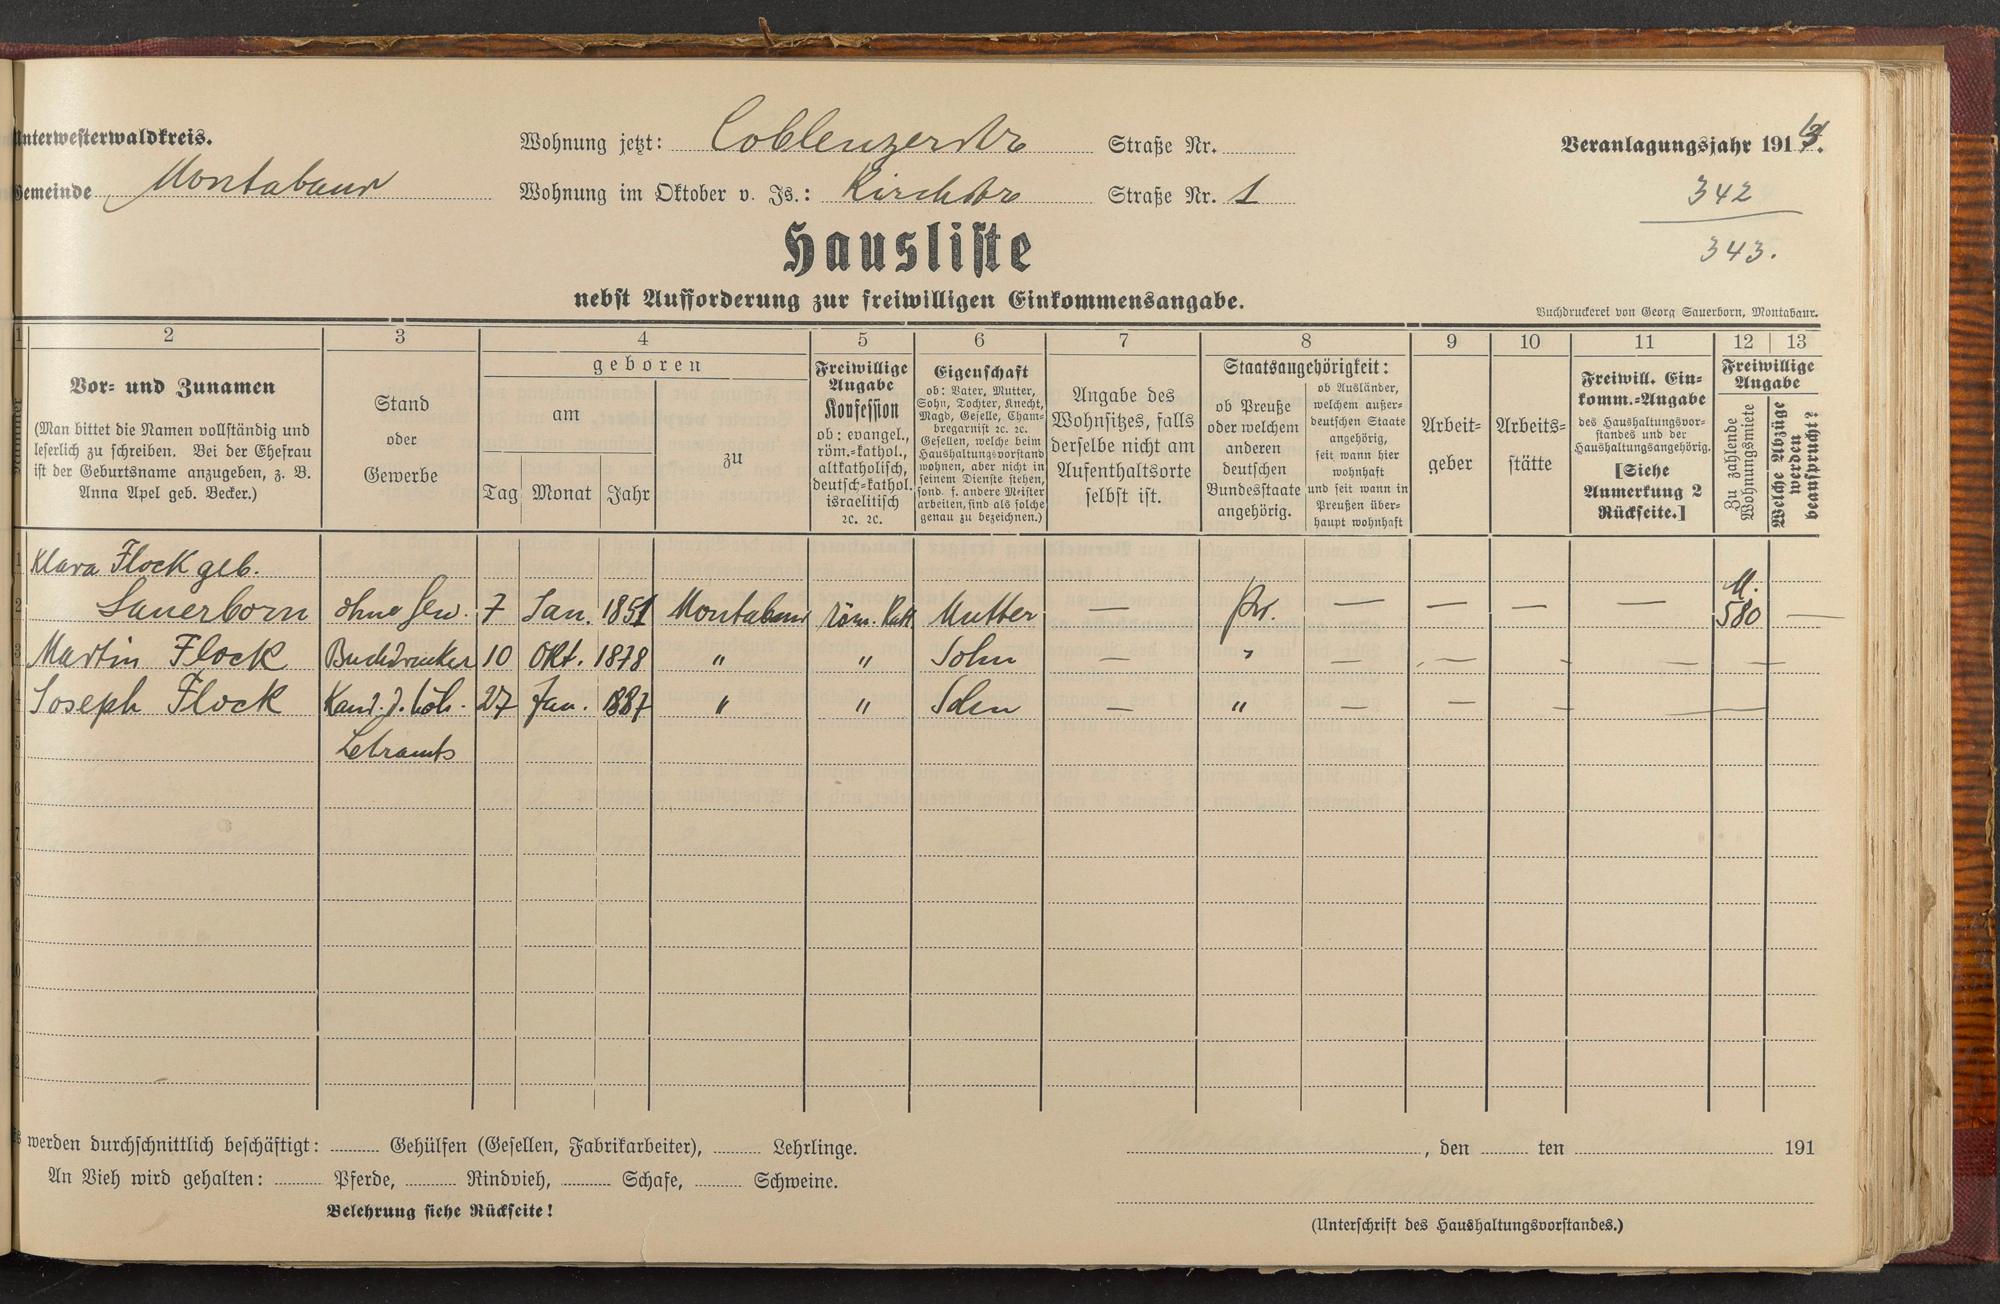 Unterwesterwaldkreis.
Wohnung jetzt: Coblenzerstr Straße Nr.
Veranlagungsjahr 191
Gemeinde Montabaur
Wohnung im Oktober v. Js.: Kirchstr Straße Nr. 1
342
343.
Hausliste
nebst Aufforderung zur freiwilligen Einkommensangabe.
Buchdruckerei von Georg Sauerborn, Montabaur.
1 2 3 4 5 6 7 8 9 10 11 12 13
Nummer
Vor- und Zunamen
(Man bittet die Namen vollständig und
leserlich zu schreiben. Bei der Ehefrau
ist der Geburtsname anzugeben, z. B.
Anna Apel geb. Becker.)
Stand
oder
Gewerbe
geboren
am
Tag Monat Jahr
zu
Freiwillige
Angabe
Konfession
ob: evangel.,
röm.-kathol.,
altkatholisch,
deutsch-kathol.
israelitisch
2c. 2c.
Eigenschaft
ob: Vater, Mutter,
Sohn, Tochter, Knecht,
Magd, Geselle, Cham-
bregarnist 2c. 2c.
Gesellen, welche beim
Haushaltungsvorstand
wohnen, aber nicht in
seinem Dienste stehen,
sond. f. andere Meister
arbeiten, sind als solche
genau zu bezeichnen.)
Angabe des
Wohnsitzes, falls
derselbe nicht am
Aufenthaltsorte
selbst ist.
Staatsangehörigkeit:
ob Preuße
oder welchem
anderen
deutschen
Bundesstaate
angehörig.
ob Ausländer,
welchem außer-
deutschen Staate
angehörig,
seit wann hier
wohnhaft
und seit wann in
Preußen über-
haupt wohnhaft
Arbeit-
geber
Arbeits-
stätte
Freiwill. Ein-
komm.-Angabe
des Haushaltungsvor-
standes und der
Haushaltungsangehörig.
[Siehe
Anmerkung 2
Rückseite.]
Freiwillige
Angabe
Zu zahlende
Wohnungsmiete
Welche Abzüge
werden
beansprucht?
1 Klara Flock geb. M.
2 Sauerborn ohne Gew. 7 Jan. 1851 Montabaur röm. Kath Mutter — Pr. — — — — 580 —
3 Martin Flock Buchdrucker 10 Okt. 1878 " " Sohn — " — — — — — —
4 Joseph Flock Kand. d. höh. 27 Jan. 1887 " " Sohn — " — — — —
5 Lehramts
6
7
8
9
10
11
12
Es werden durchschnittlich beschäftigt: Gehülfen (Gesellen, Fabrikarbeiter), Lehrlinge.
, den ten 191
An Vieh wird gehalten: Pferde, Rindvieh, Schafe, Schweine.
Belehrung siehe Rückseite!
(Unterschrift des Haushaltungsvorstandes.)